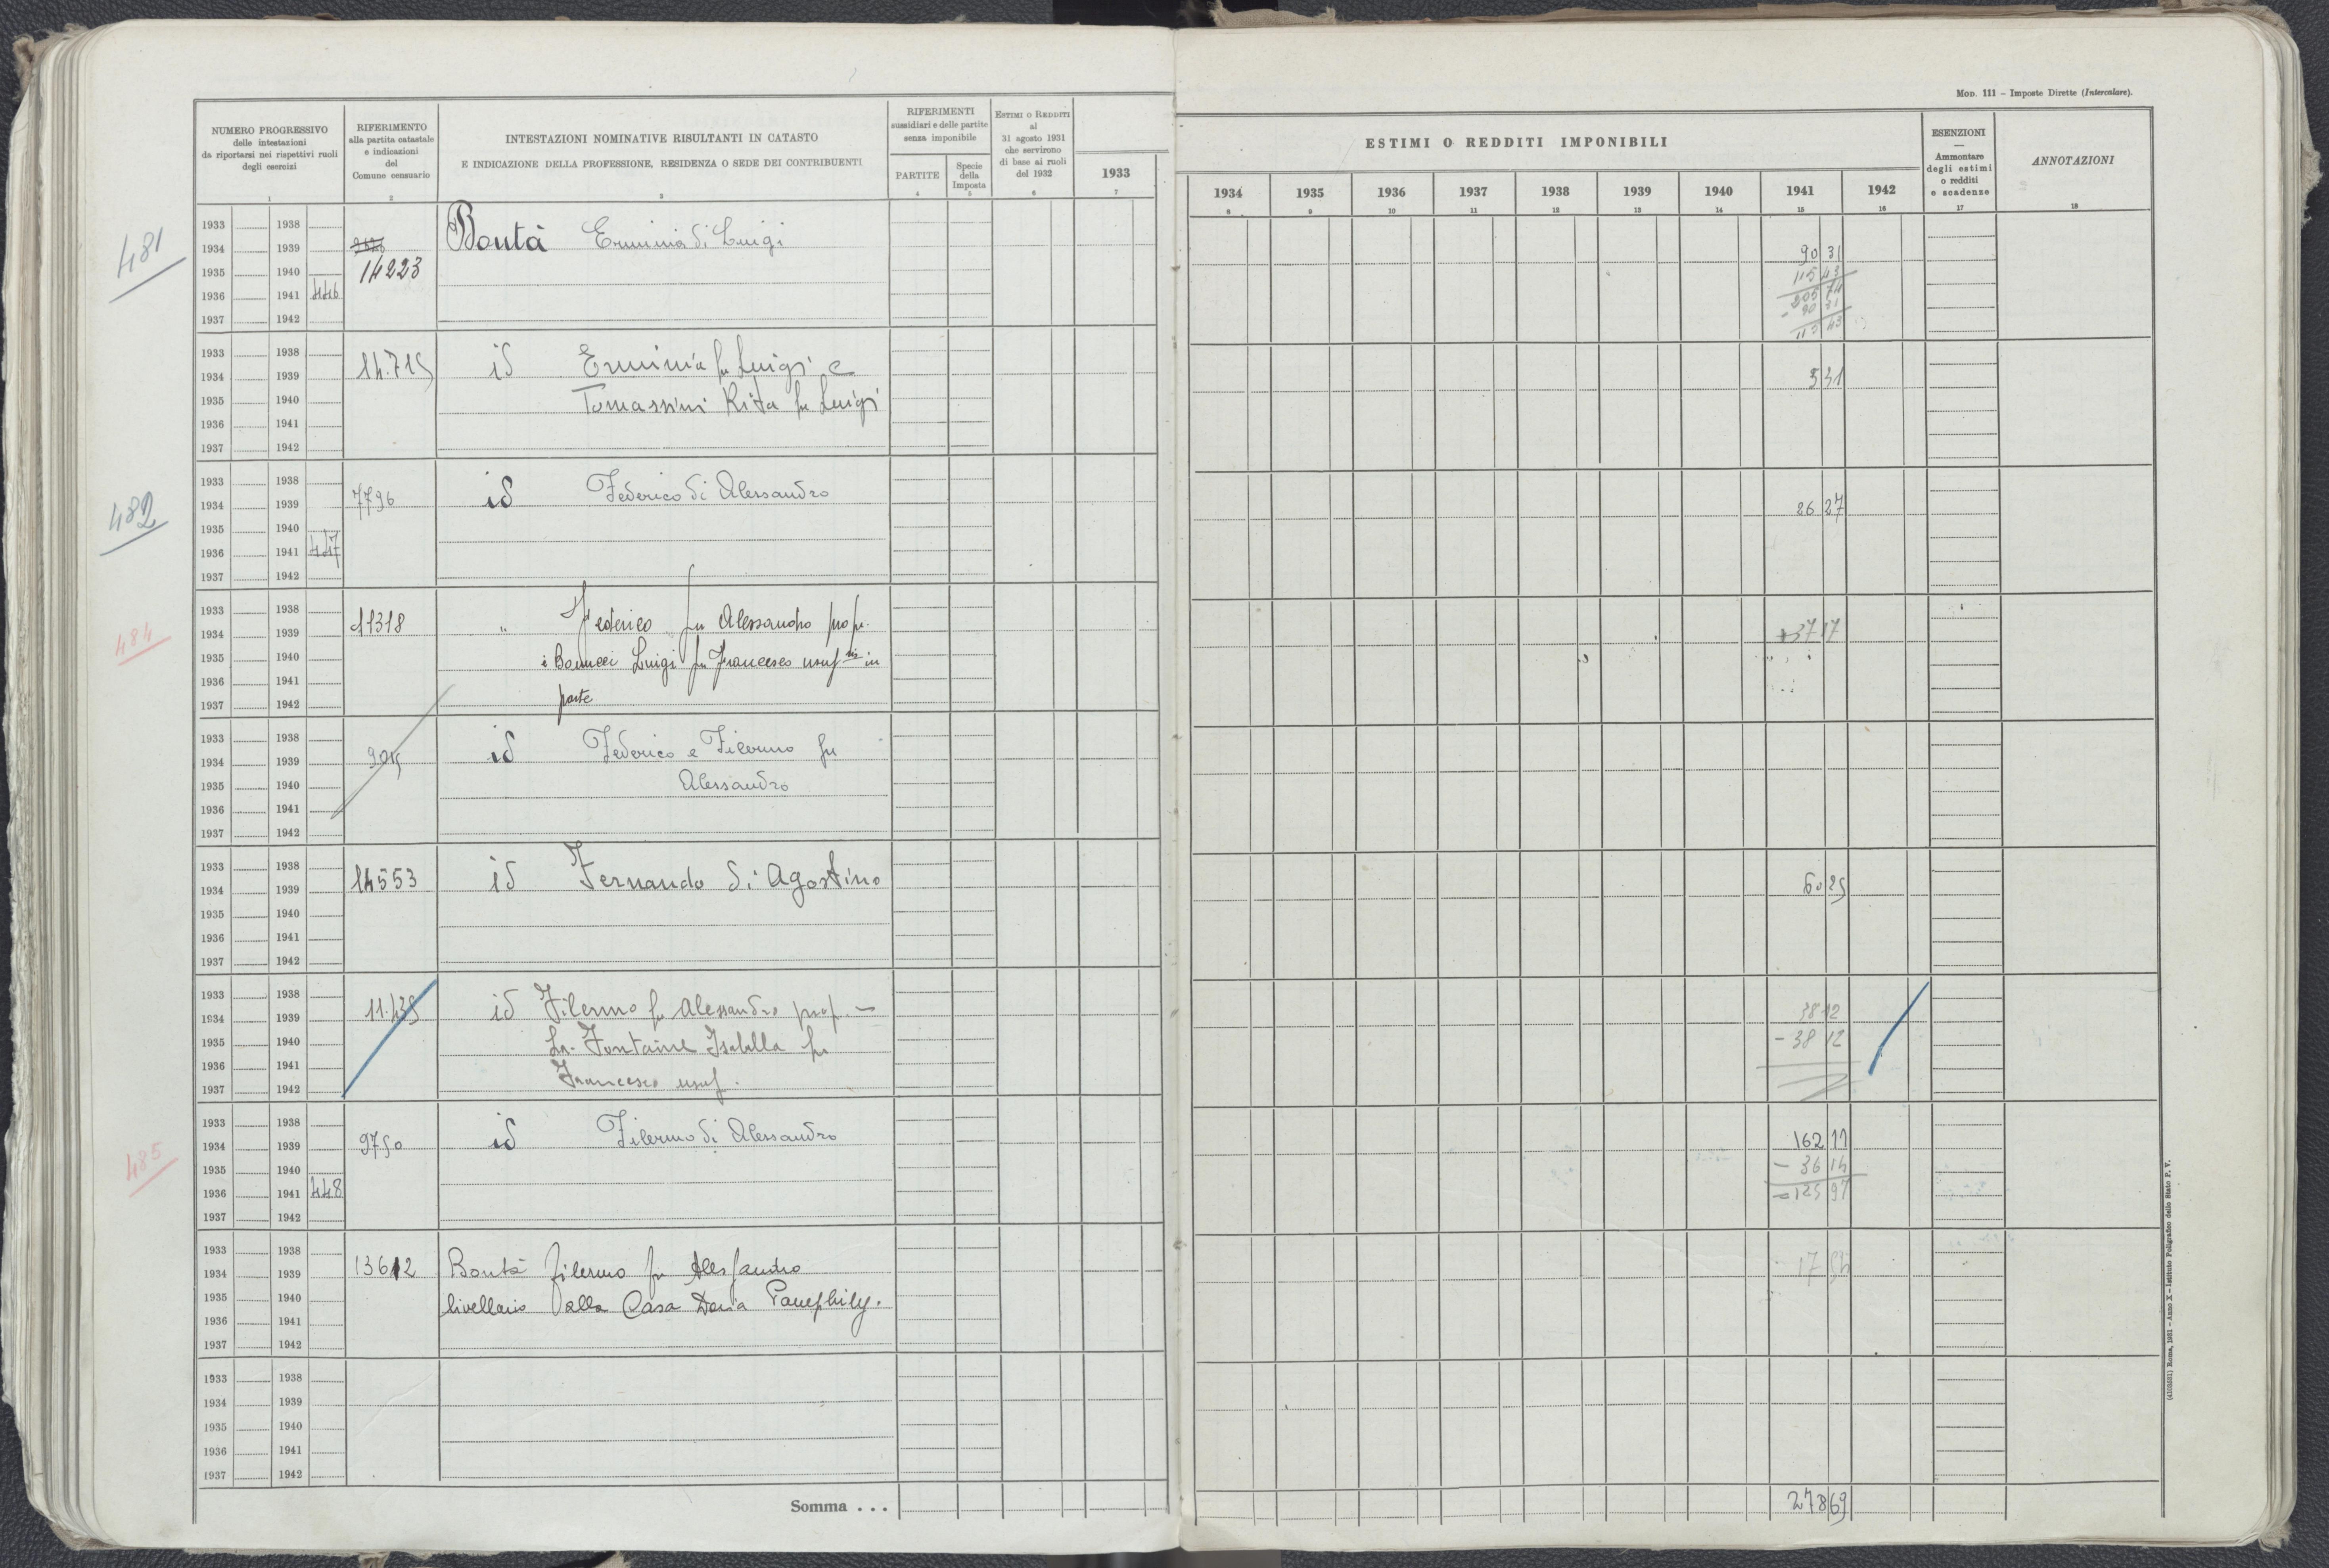 Mod. 111 - Imposte Dirette (Intercalare).
NUMERO PROGRESSIVO
delle intestazioni
da riportarsi nei rispettivi ruoli
degli esercizi
1
RIFERIMENTO
alla partita catastale
e indicazioni
del
Comune censuario
2
INTESTAZIONI NOMINATIVE RISULTANTI IN CATASTO
E INDICAZIONE DELLA PROFESSIONE, RESIDENZA O SEDE DEI CONTRIBUENTI
3
RIFERIMENTI
sussidiari e delle partite
senza imponibile
PARTITE
4
Specie
della
Imposta
5
ESTIMI O REDDITI
al
31 agosto 1931
che servirono
di base ai ruoli
del 1932
6
1933
7
ESTIMI O REDDITI IMPONIBILI
1934 1935 1936 1937 1938 1939 1940 1941 1942
8 9 10 11 12 13 14 15 16
ESENZIONI
—
Ammontare
degli estimi
o redditi
e scadenze
17
ANNOTAZIONI
18
481
1933 1938
1934 1939 Bontà Erminia di Luigi 90 31
1935 1940 14223 115 43
1936 1941 446 205 74
- 90 31
1937 1942 115 43
1933 1938
1934 1939 14.715 id Erminia fu Luigi e 5 31
1935 1940 Tomassini Rita fu Luigi
1936 1941
1937 1942
482
1933 1938
1934 1939 7796 id Federico di Alessandro 26 27
1935 1940
1936 1941 447
1937 1942
484
1933 1938
1934 1939 11318 " Federico fu Alessandro prop. 37 17
1935 1940 Luigi fu Francesco usuf in
1936 1941
1937 1942 parte
1933 1938
1934 1939 9015 id Federico e Filermo fu
1935 1940 Alessandro
1936 1941
1937 1942
1933 1938
1934 1939 14553 id Fernando di Agostino 60 25
1935 1940
1936 1941
1937 1942
1933 1938
1934 1939 11.435 id Filermo fu Alessandro prop. — 38 12
1935 1940 La Fontaine Isabella fu - 38 12
1936 1941
1937 1942 Francesco usuf.
485
1933 1938
1934 1939 9750 id Filermo di Alessandro 162 11
1935 1940 - 36 14
1936 1941 448 = 125 97
1937 1942
1933 1938
1934 1939 13612 Bontà filermo fu Alessandro 17
1935 1940 livellario alla Casa Doria Pamphily.
1936 1941
1937 1942
1933 1938
1934 1939
1935 1940
1936 1941
1937 1942
Somma . . . 278 69
(4105531) Roma, 1931 - Anno X - Istituto Poligrafico dello Stato P. V.